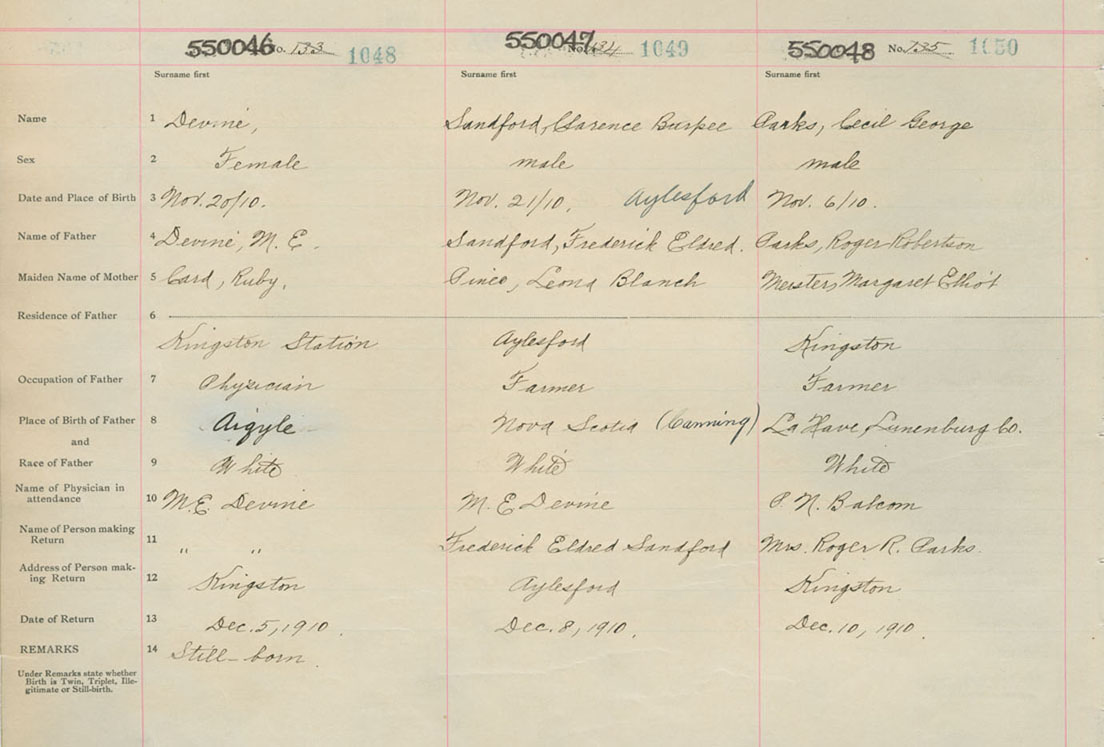 550046 No. 133 1048 550047 No. 134 1049 550048 No. 135 1050
Surname first Surname first Surname first
Name 1 Devine, Sandford, Clarence Burpee Parks, Cecil George
Sex 2 Female male male
Date and Place of Birth 3 Nov. 20/10. Nov. 21/10. Aylesford Nov. 6/10.
Name of Father 4 Devine, M. E. Sandford, Frederick Eldred. Parks, Roger Robertson
Maiden Name of Mother 5 Card, Ruby, Pineo, Leona Blanch Meister, Margaret Elliot
Residence of Father 6
Kingston Station Aylesford Kingston
Occupation of Father 7 Physician Farmer Farmer
Place of Birth of Father 8 Argyle Nova Scotia (Canning) La Have, Lunenburg Co.
and
Race of Father 9 White White White
Name of Physician in
attendance 10 M.E. Devine M. E Devine P. N. Balcom
Name of Person making
Return 11 " " Frederick Eldred Sandford Mrs. Roger R. Parks.
Address of Person mak-
ing Return 12 Kingston Aylesford Kingston
Date of Return 13 Dec. 5, 1910. Dec. 8, 1910. Dec. 10, 1910.
REMARKS 14 Still-born.
Under Remarks state whether
Birth is Twin, Triplet, Ille-
gitimate or Still-birth.